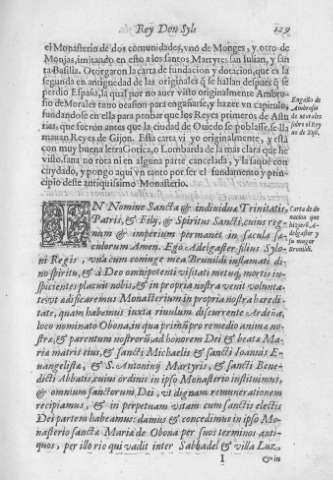 Rey Don Sylo
129
el Monasterio de dos comunidades, vno de Monges, y otro de
Monjas, imitando en esto a los santos Martyres san Iulian, y san
ta Basilia. Otorgaron la carta de fundacion y dotacion, que es la
segunda en antiguedad de las originales q̃ se hallan despues q̃ se
perdio España, la qual por no auer visto originalmente Ambro-
sio de Morales tuuo ocasion para engañarse, y hazer vn capitulo,
fundandose en ella para probar que los Reyes primeros de Astu
rias, que fueron antes que la ciudad de Ouiedo se poblasse, se lla
mauan Reyes de Gijon. Esta carta vi yo originalmente, y està
con muy buena letra Gotica, o Lombarda de la mas clara que he
visto, sana no rota ni en alguna parte cancelada, y la saquè con
cuydado, y pongo aqui vn tanto por ser el fundamento y prin-
cipio deste antiquissimo Monasterio.
Engaño de
Ambrosio
de morales
sobre el rey
no de Sylo.
IN Nomine Sancta & indiuidua Trinitatis,
Patris, & Filij, & Spiritus Sancti, cuius reg-
num & imperium permanet in sæcula sæ-
culorum Amen. Ego Adelgaster filius Sylo-
ni Regis, vna cum coniuge mea Brunildi inflamate di-
no spiritu, & à Deo omnipotenti visitati metuq; mortis in-
spicientes placuit nobis, & in propria nostra venit volunta-
te vt adificaremus Monasterium in propria nostra haredi-
tate, quam habemus iuxta riuulum discurrente Ardeña,
loco nominato Obona, in qua primũ pro remedio anima no-
stra, & parentum nostrorũ, ad honorem Dei & beata Ma-
ria matris eius, & sancti Michaelis & sancti Ioannis E-
uangelista, & S. Antoninij Martyris, & sancti Bene-
dicti Abbatis, cuius ordinis in ipso Monasterio instituimus,
& omnium sanctorum Dei, vt dignam remunerationem
recipiamus, & in perpetuam vitam cum sanctis electis
Dei partem habeamus: damus & concedimus in ipso Mo-
nasterio sancta Maria de Obona per suos terminos anti-
quos, per illo rio qui vadit inter Sabbadel & villa Luz,
Carta de do
nacion que
hizierõ, A-
delgaster y
su muger
Brunildi.
I
& in